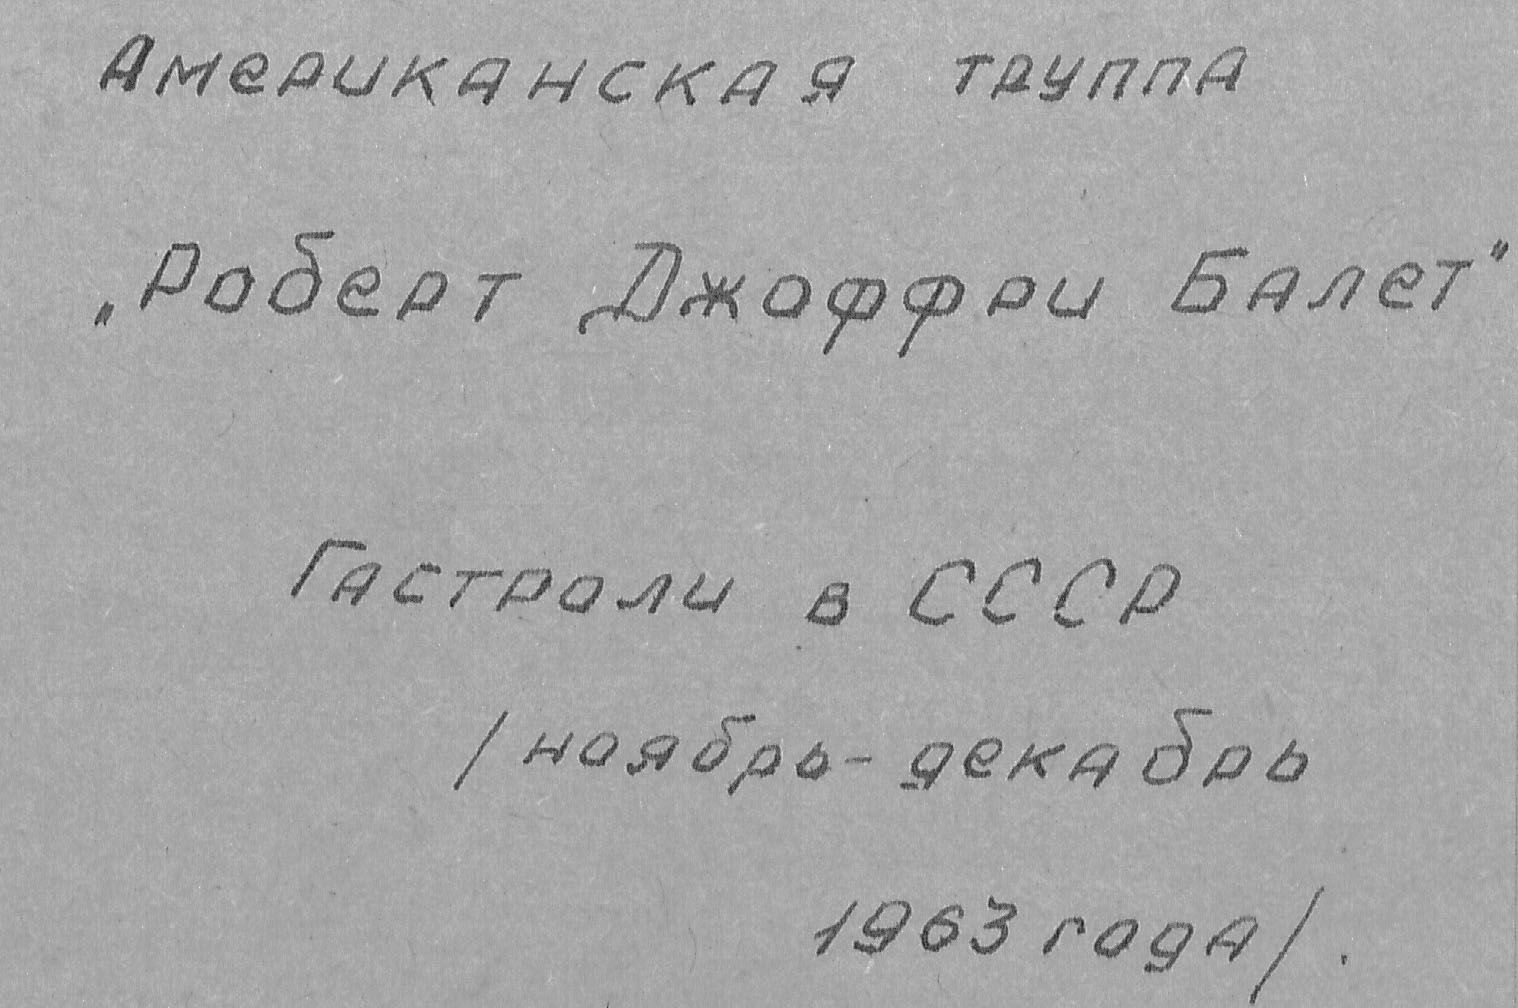 Американская труппа
„Роберт Джоффри Балет"
Гастроли в СССР
/ноябрь-декабрь
1963 года/.